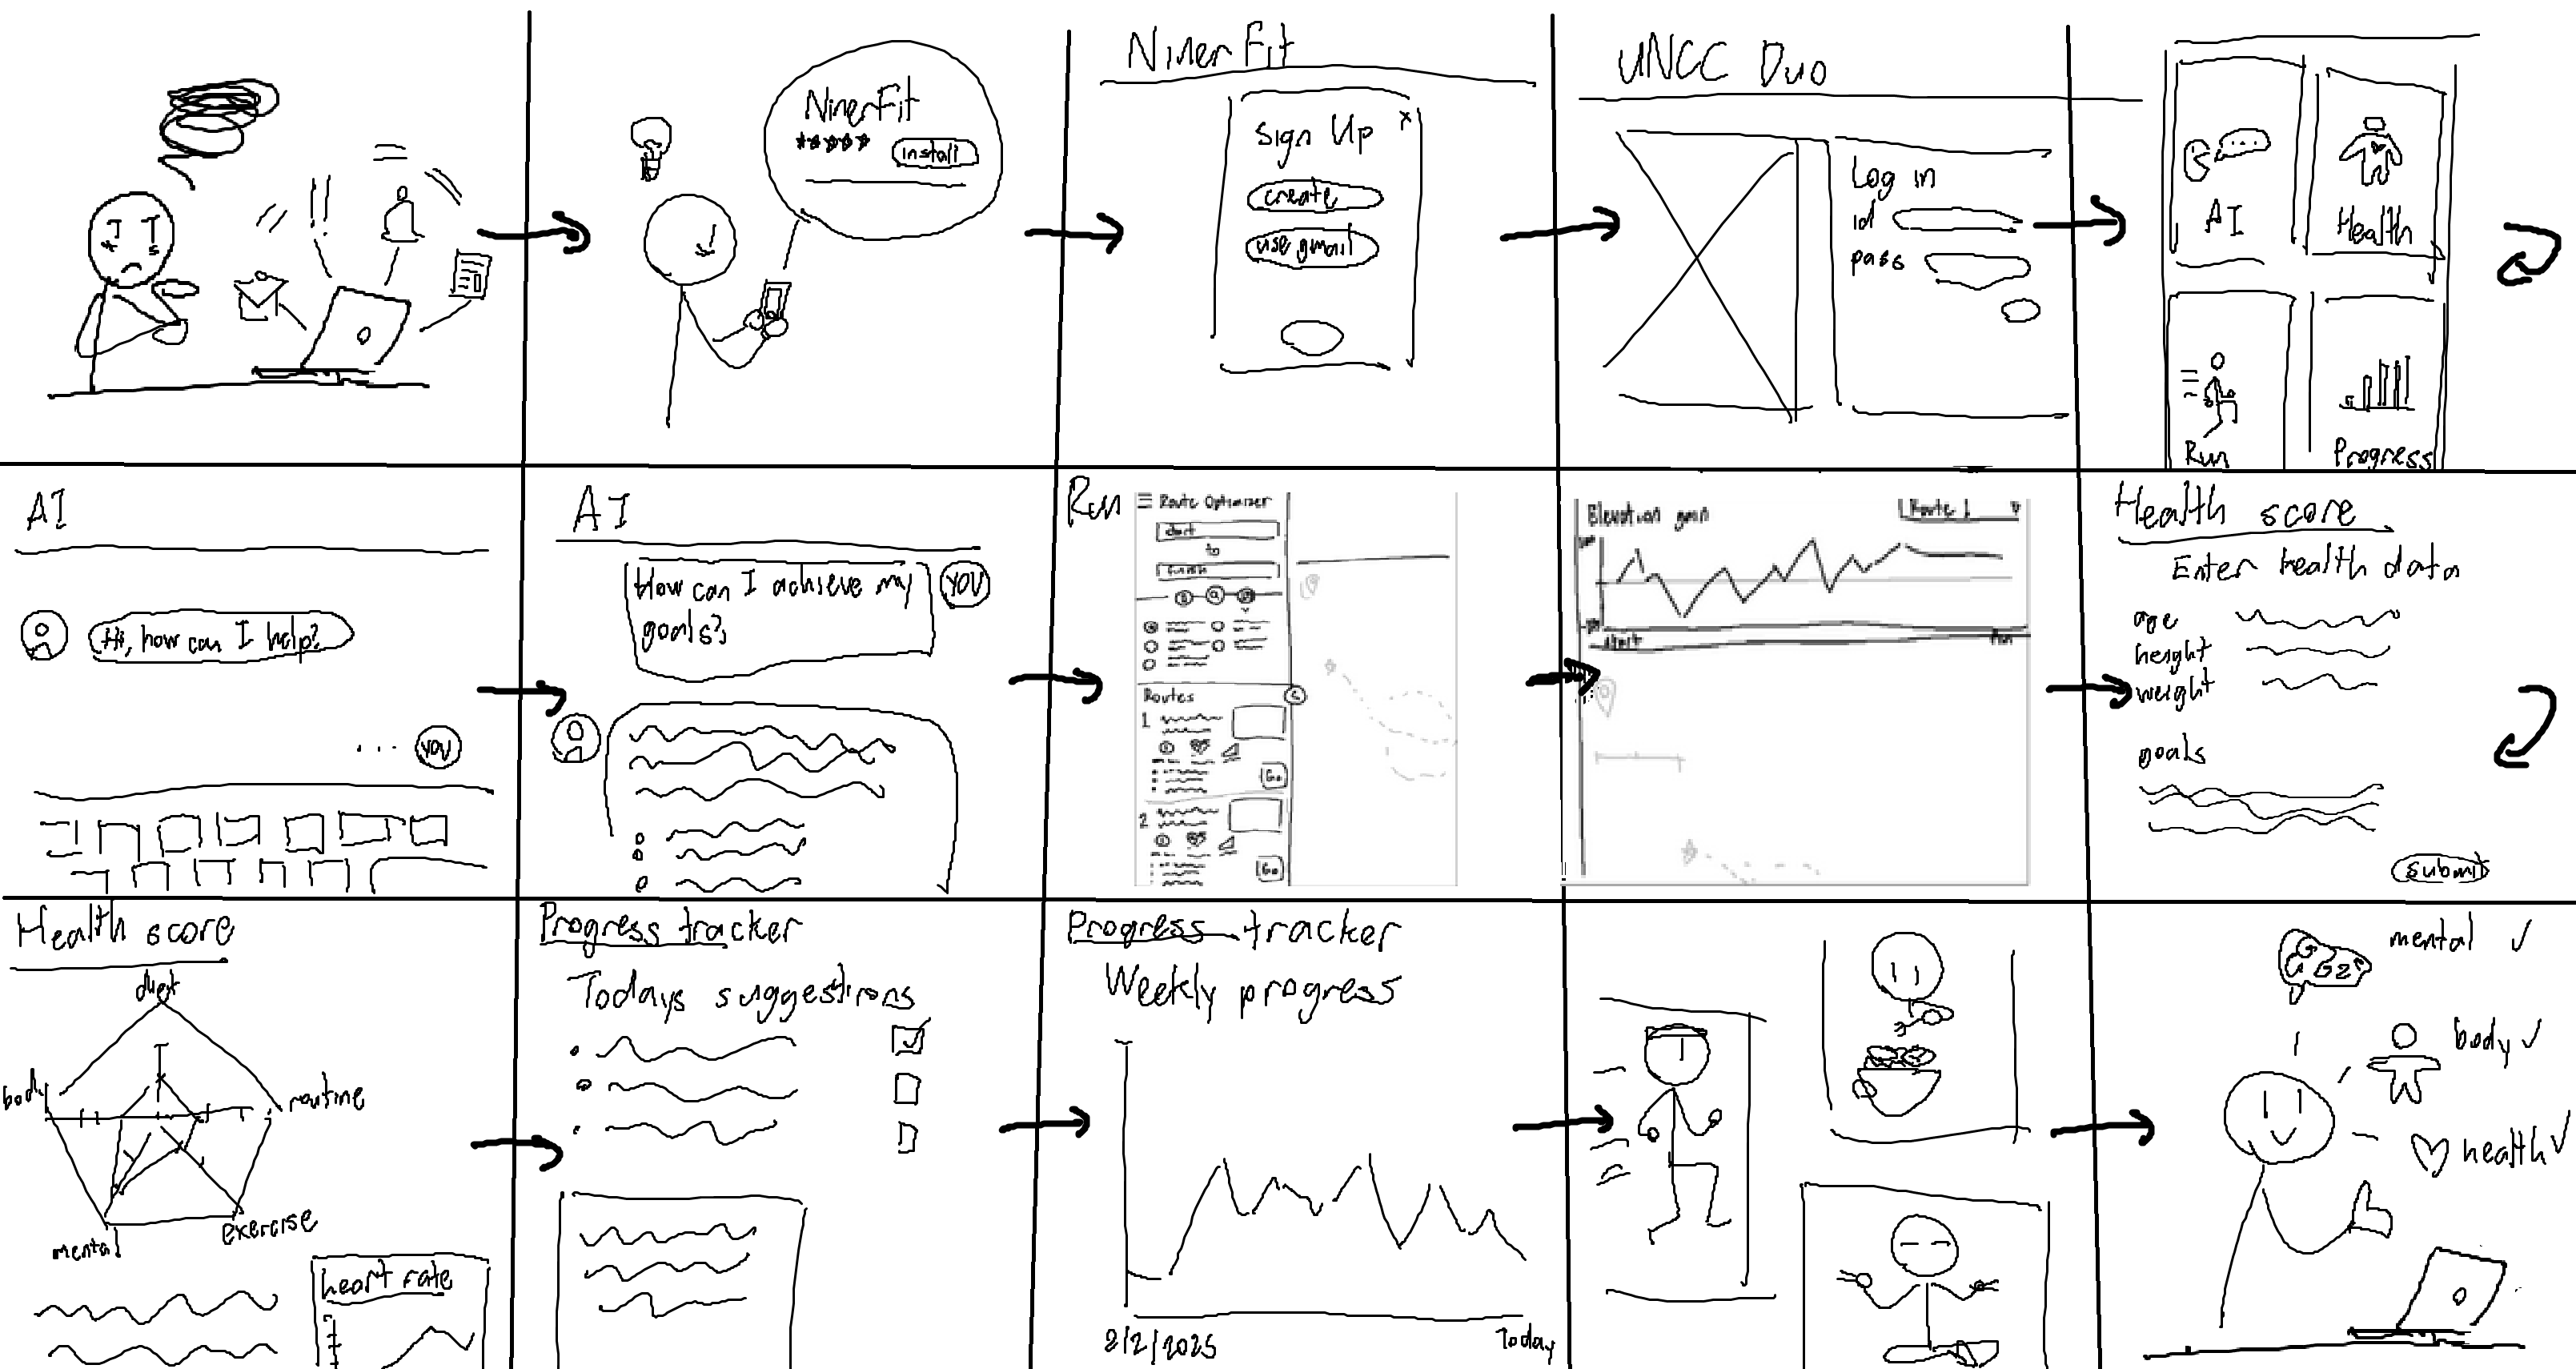 NinerFit
install
NinerFit
Sign Up
x
create
use gmail
UNCC Duo
Log in
id
pass
AI
Health
Run
Progress
AI
Hi, how can I help?
... you
AI
How can I achieve my
goals?
you
Run
Route Optimizer
start
to
finish
Routes
1
Go
2
Go
Elevation gain
Route 1
start
Health score
Enter health data
age
height
weight
goals
submit
Health score
diet
body
routine
mental
exercise
heart rate
Progress tracker
Todays suggestions
Progress tracker
Weekly progress
2/2/2025
Today
mental ✓
body ✓
health ✓